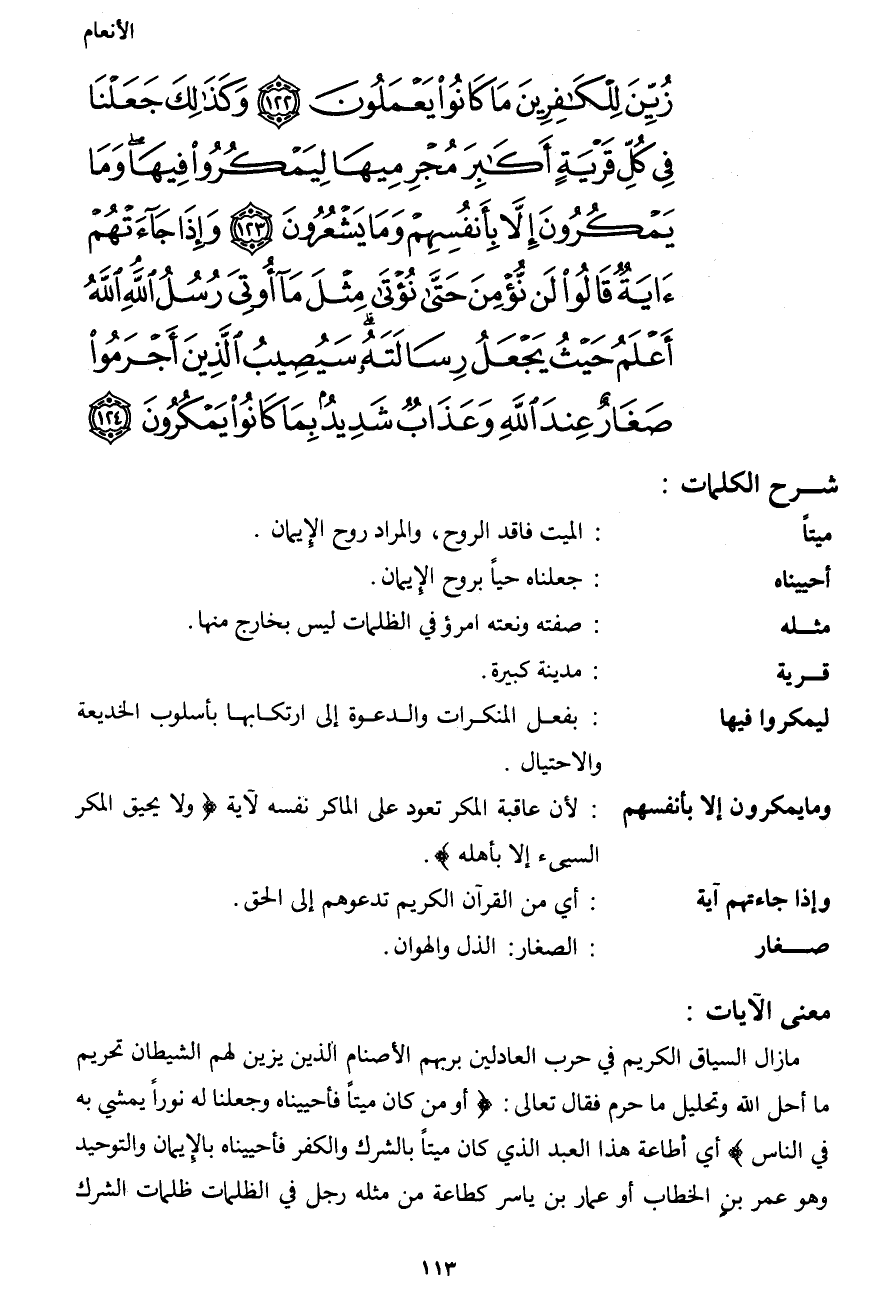 الأنعام
زُيِّنَ لِلْكَٰفِرِينَ مَا كَانُوا۟ يَعْمَلُونَ ١٢٢ وَكَذَٰلِكَ جَعَلْنَا
فِى كُلِّ قَرْيَةٍ أَكَٰبِرَ مُجْرِمِيهَا لِيَمْكُرُوا۟ فِيهَا ۖ وَمَا
يَمْكُرُونَ إِلَّا بِأَنفُسِهِمْ وَمَا يَشْعُرُونَ ١٢٣ وَإِذَا جَآءَتْهُمْ
ءَايَةٌ قَالُوا۟ لَن نُّؤْمِنَ حَتَّىٰ نُؤْتَىٰ مِثْلَ مَآ أُوتِىَ رُسُلُ ٱللَّهِ ۘ ٱللَّهُ
أَعْلَمُ حَيْثُ يَجْعَلُ رِسَالَتَهُۥ ۗ سَيُصِيبُ ٱلَّذِينَ أَجْرَمُوا۟
صَغَارٌ عِندَ ٱللَّهِ وَعَذَابٌ شَدِيدٌۢ بِمَا كَانُوا۟ يَمْكُرُونَ ١٢٤
شــرح الكلمات :
ميتاً : الميت فاقد الروح، والمراد روح الإيمان .
أحييناه : جعلناه حياً بروح الإيمان.
مثـــله : صفته ونعته امرؤ في الظلمات ليس بخارج منها.
قـــرية : مدينة كبيرة.
ليمكروا فيها : بفعـل المنكـرات والـدعـوة إلى ارتكـابهـا بأسلوب الخديعة
والاحتيال .
ومايمكرون إلا بأنفسهم : لأن عاقبة المكر تعود على الماكر نفسه لآية ﴿ ولا يحيق المكر
السيىء إلا بأهله ﴾ .
وإذا جاءتهم آية : أي من القرآن الكريم تدعوهم إلى الحق.
صـــغار : الصغار: الذل والهوان.
معنى الآيات :
مازال السياق الكريم في حرب العادلين بربهم الأصنام الذين يزين لهم الشيطان تحريم
ما أحل الله وتحليل ما حرم فقال تعالى: ﴿ أو من كان ميتاً فأحييناه وجعلنا له نوراً يمشي به
في الناس ﴾ أي أطاعة هذا العبد الذي كان ميتاً بالشرك والكفر فأحييناه بالإيمان والتوحيد
وهو عمر بن الخطاب أو عمار بن ياسر كطاعة من مثله رجل في الظلمات ظلمات الشرك
١١٣